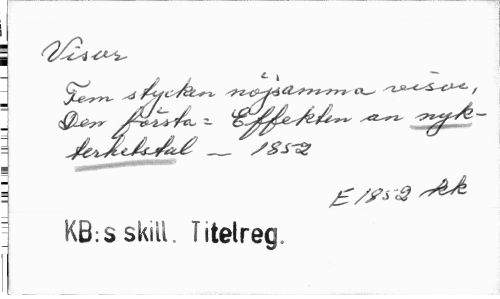 Visor
Fem stycken nöjsamma visor,
Den första: Effekten an nyk-
terhetstal — 1852
E 1852 kk
KB:s skill. Titelreg.